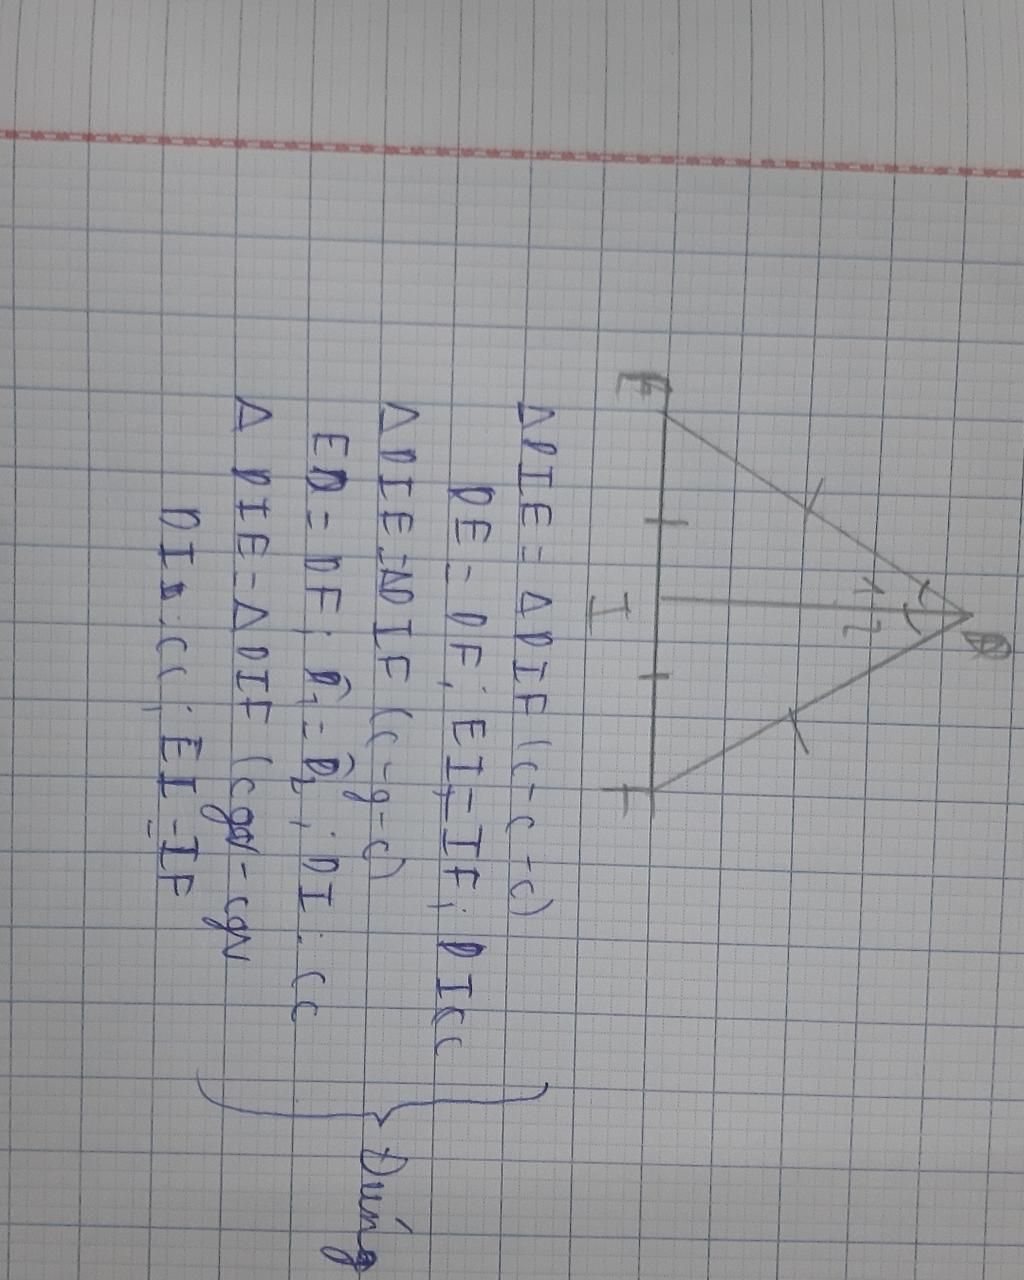 D
1 2
E I F
ΔDIE = ΔDIF (c-c-c)
DE = DF; EI = IF; DI CC
ΔDIE = ΔDIF (c-g-c)
ED = DF; D̂₁ = D̂₂; DI: CC
Δ DIE = ΔDIF (cgv - cgv
DI: CC; EI = IF
Đúng